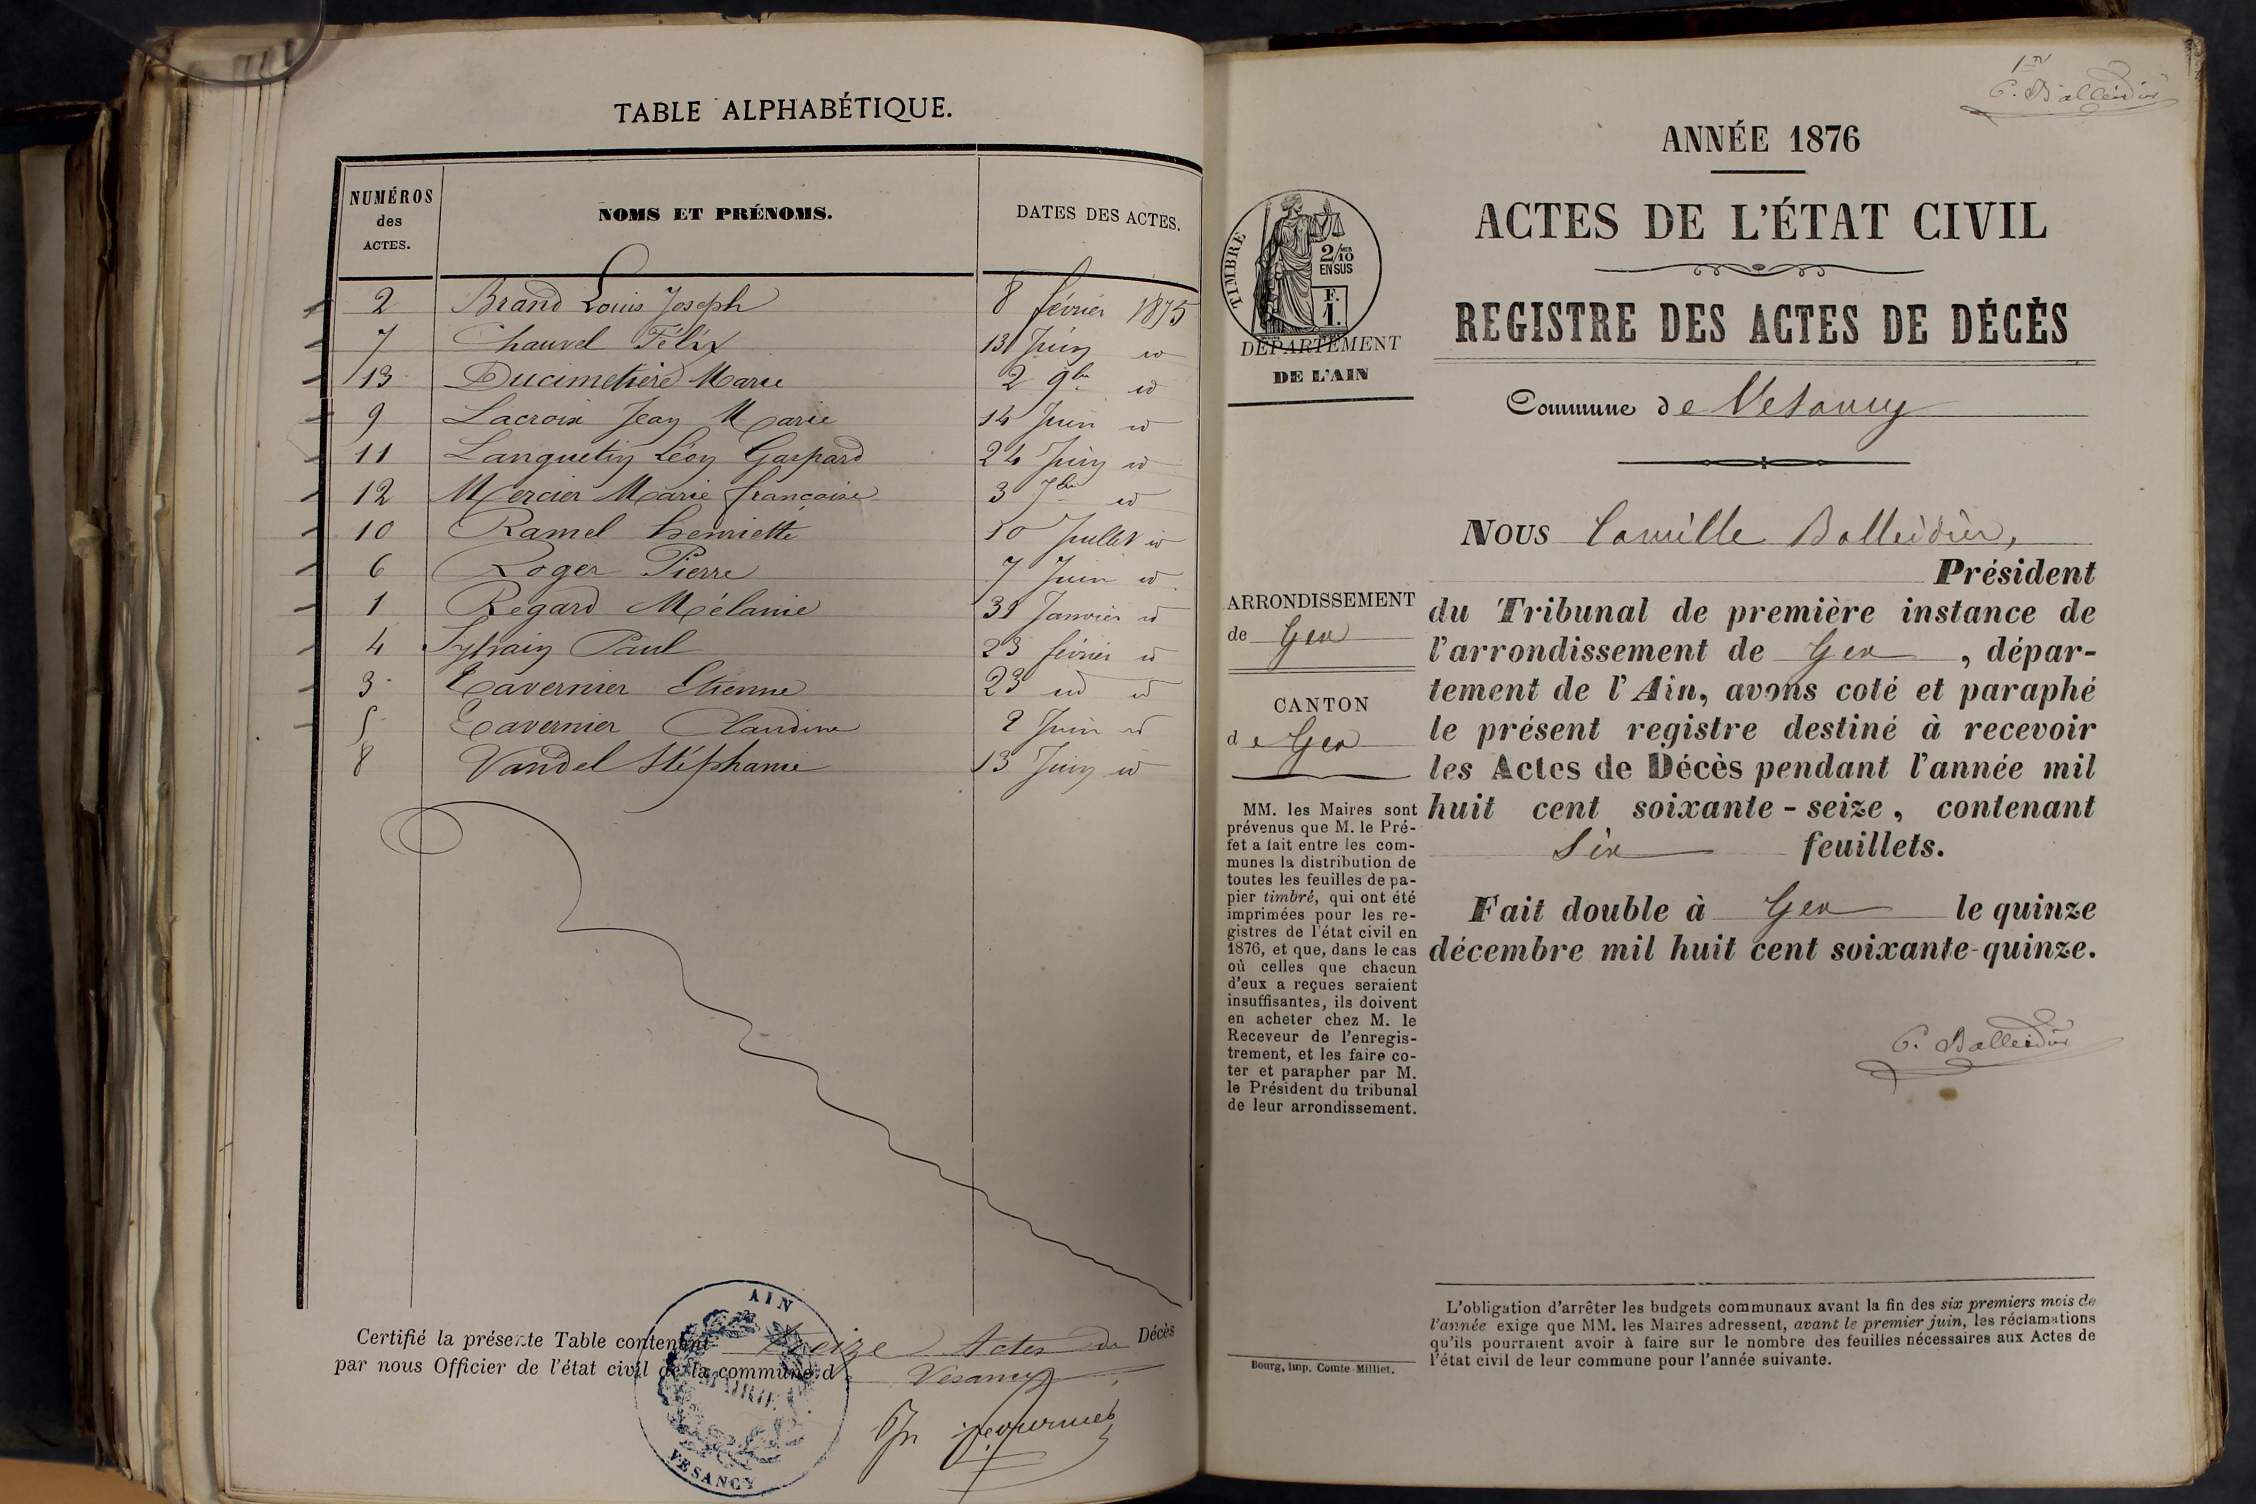 TABLE ALPHABÉTIQUE.
NUMÉROS des ACTES. NOMS ET PRÉNOMS. DATES DES ACTES.
2 Brand Louis Joseph 8 février 1875
7 Chauvel Félix 13 Juin id
13 Ducimetière Marie 2 9bre id
9 Lacroix Jean Marie 14 Juin id
11 Languetin Léon Gaspard 24 Juin id
12 Mercier Marie françoise 3 7bre id
10 Ramel henriette 10 Juillet id
6 Roger Pierre 7 Juin id
1 Regard Mélanie 31 Janvier id
4 Sylvain Paul 23 février id
3 Tavernier Etienne 23 id id
5 Tavernier Claudine 2 Juin id
8 Vandel Stéphanie 13 Juin id
Certifié la présente Table contenant treize Actes de Décès
par nous Officier de l'état civil de la commune d Vesancy
AIN
MAIRIE
VESANCY
1er
C. Balleidier
ANNÉE 1876
ACTES DE L'ÉTAT CIVIL
REGISTRE DES ACTES DE DÉCÈS
TIMBRE
2/10 EN SUS
F. 1.
DÉPARTEMENT
DE L'AIN
Commune de Vesancy
NOUS Camille Balleidier,
Président
du Tribunal de première instance de
l'arrondissement de Gex, dépar-
tement de l'Ain, avons coté et paraphé
le présent registre destiné à recevoir
les Actes de Décès pendant l'année mil
huit cent soixante-seize, contenant
Six feuillets.
Fait double à Gex le quinze
décembre mil huit cent soixante-quinze.
C. Balleidier
ARRONDISSEMENT
de Gex
CANTON
de Gex
MM. les Maires sont
prévenus que M. le Pré-
fet a fait entre les com-
munes la distribution de
toutes les feuilles de pa-
pier timbré, qui ont été
imprimées pour les re-
gistres de l'état civil en
1876, et que, dans le cas
où celles que chacun
d'eux a reçues seraient
insuffisantes, ils doivent
en acheter chez M. le
Receveur de l'enregis-
trement, et les faire co-
ter et parapher par M.
le Président du tribunal
de leur arrondissement.
Bourg, imp. Comte-Milliet.
L'obligation d'arrêter les budgets communaux avant la fin des six premiers mois de
l'année exige que MM. les Maires adressent, avant le premier juin, les réclamations
qu'ils pourraient avoir à faire sur le nombre des feuilles nécessaires aux Actes de
l'état civil de leur commune pour l'année suivante.